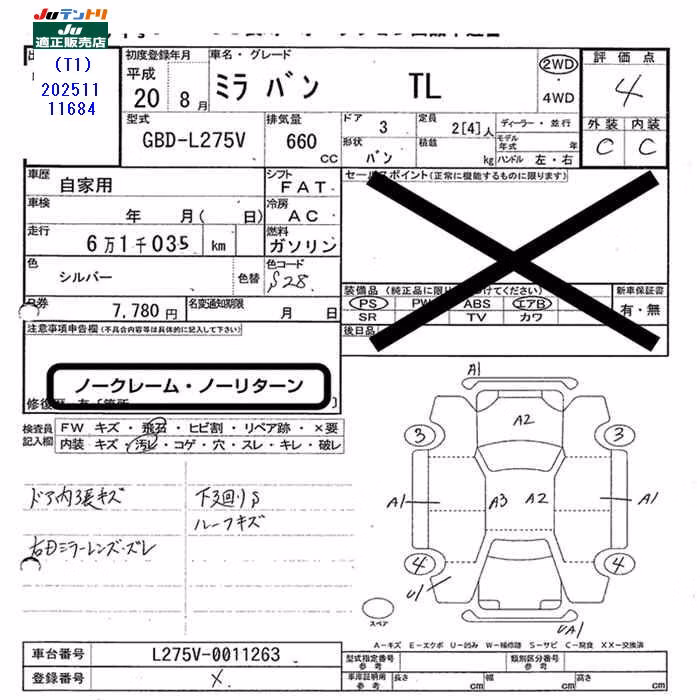 Juテントリ
Ju
適正販売店
(T1)
202511
11684
初度登録年月
平成
20 8月
車名・グレード
ミラ バン TL
2WD
4WD
評価点
4
外装 内装
C C
型式
GBD-L275V
排気量
660
CC
ドア 3
形状 バン
定員 2[4]人
積載 kg
ディーラー・並行
モデル年式 年
ハンドル 左・右
車歴
自家用
シフト
FAT
車検
年 月( 日)
冷房
AC
走行
6万1千035 km
燃料
ガソリン
色
シルバー
色替
色コード
S28
券
7,780円
名変通知期限
月 日
セールスポイント(正常に機能するものに限ります)
装備品(純正品に限り けてください)
PS PW ABS エアB
SR TV カワ
新車保証書
有・無
後日品
注意事項申告欄(不具合内容等は具体的に記入して下さい)
ノークレーム・ノーリターン
検査員記入欄
FW キズ・飛石・ヒビ割・リペア跡・×要
内装 キズ・汚レ・コゲ・穴・スレ・キレ・破レ
ドア内張キズ
右Dミラーレンズ・ズレ
下廻りS
ルーフキズ
A1
A2
3 3
A1 A3 A2 A1
4 4
U1
UA1
スペア
A-キズ E-エクボ U-凹み W-補修跡 S-サビ C-腐食 XX-交換済
車台番号 L275V-0011263
登録番号 ×
型式指定番号
参考
類別区分番号
参考
車庫証明用
参考
長さ cm 幅 cm 高さ cm